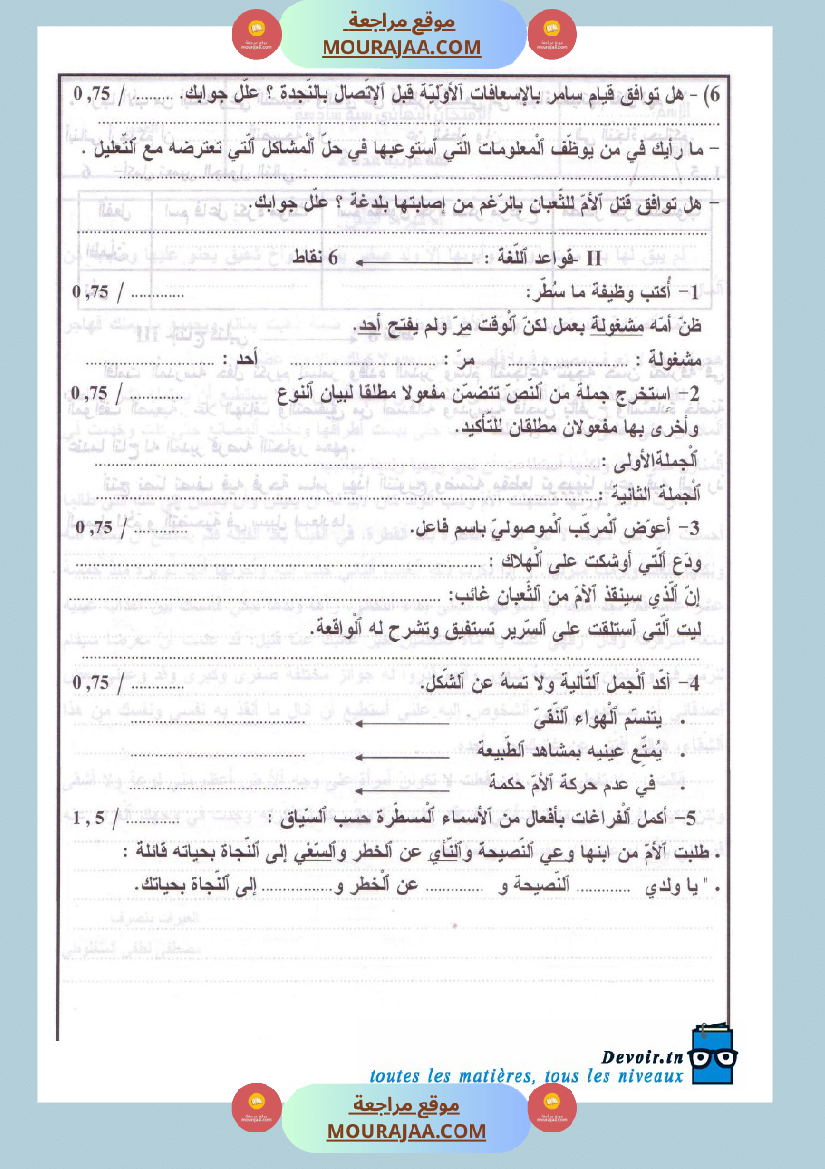 موقع مراجعة
MOURAJAA.COM
6) - هل توافق قيام سامر بالإسعافات ٱلأوّليّة قبل ٱلاتّصال بالنّجدة ؟ علّل جوابك. ......... / 0,75
– ما رأيك في من يوظّف ٱلمعلومات ٱلّتي ٱستوعبها في حلّ ٱلمشاكل ٱلّتي تعترضه مع ٱلتّعليل .
– هل توافق قتل ٱلأمّ للثّعبان بالرّغم من إصابتها بلدغة ؟ علّل جوابك.
II -قواعد ٱللّغة : 6 نقاط
1- أُكتب وظيفة ما سُطّر: ............. / 0,75
ظنّ أمّه مشغولة بعمل لكنّ ٱلوقت مرّ ولم يفتح أحد.
مشغولة : .............................. مرّ : .............................. أحد : ..............................
2- إستخرج جملة من ٱلنّصّ تتضمّن مفعولا مطلقا لبيان ٱلنّوع ............. / 0,75
وأخرى بها مفعولان مطلقان للتّأكيد.
ٱلجملةالأولى : ..............................
ٱلجملة الثانية : ..............................
3- أعوّض ٱلمركّب ٱلموصوليّ باسم فاعل. ............. / 0,75
ودّع ٱلّتي أوشكت على ٱلهلاك : ..............................
إنّ ٱلّذي سينقذ ٱلأمّ من ٱلثّعبان غائب: ..............................
ليت ٱلّتي ٱستلقت على ٱلسّرير تستفيق وتشرح له ٱلواقعة.
4- أكّد ٱلجمل ٱلتّالية ولا تسهُ عن ٱلشّكل. ............. / 0,75
. يتنسّم ٱلهواء ٱلنّقيّ ..............................
. يُمتّع عينيه بمشاهد ٱلطّبيعة ..............................
. في عدم حركة ٱلأمّ حكمة ..............................
5- أكمل ٱلفراغات بأفعال من ٱلأسماء ٱلمسطّرة حسب ٱلسّياق : ............. / 1,5
. طلبت ٱلأمّ من ابنها وعي ٱلنّصيحة وٱلنّأي عن الخطر وٱلسّعْي إلى ٱلنّجاة بحياته قائلة :
. " يا ولدي ............ ٱلنّصيحة و ............. عن ٱلخطر و................ إلى ٱلنّجاة بحياتك.
Devoir.tn
toutes les matières, tous les niveaux
موقع مراجعة
MOURAJAA.COM